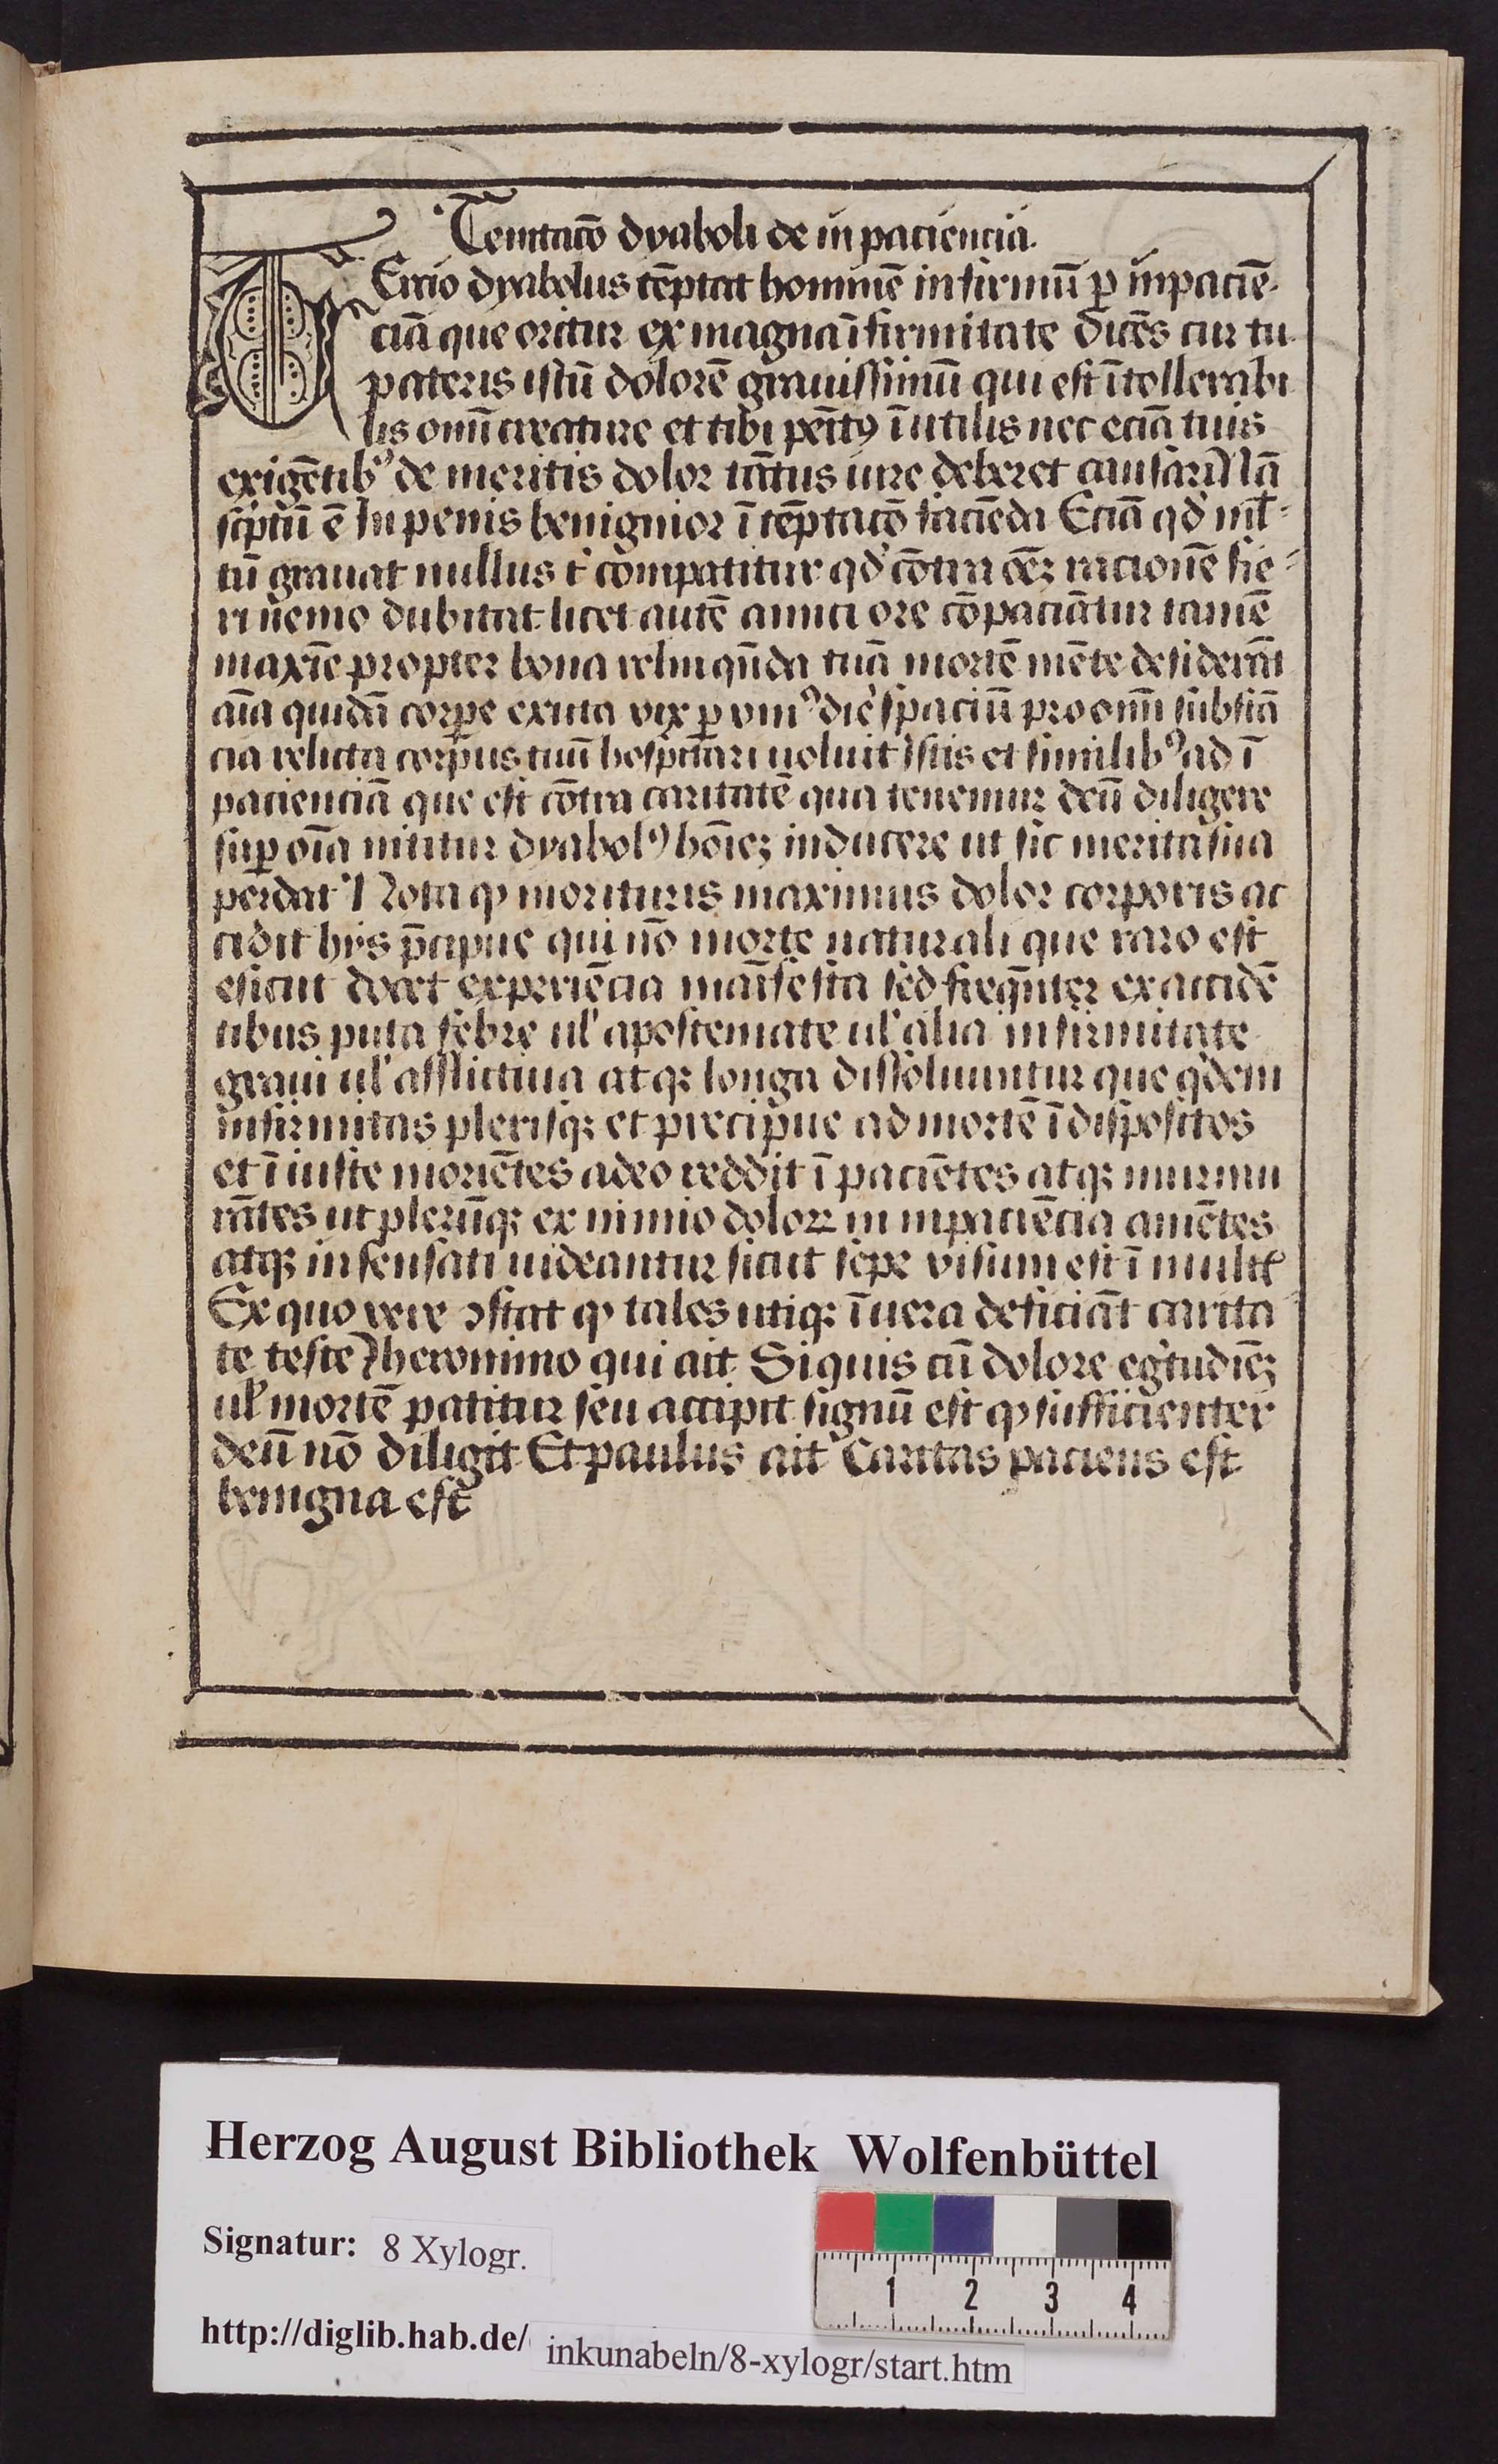 Temtacō dyaboli de inpaciencia.
TErcio dyabolus tēptat hominē infirmū ꝑ inpaciē-
ciā que oritur ex magna īfirmitate dicēs cur tu
pateris istū dolorē grauissimū qui est ītollerabi
lis omī creature et tibi penitꝰ īutilis nec eciā tuis
exigētibꝰ de meritis dolor tātus iure deberet causari Nā
scptū ē In penis benignior ī tēptacō facieda Eciā qd mł-
tū grauat nullus tͥ compatitur qd cōtra oēꝫ racionē fie-
ri nemo dubitat licet autē amici ore cōpaciātur tamē
maxīe propter bona relinqn̄da tuā mortē mēte desiderāt
aīa quidā corꝑe exuta vix ꝑ vniꝰ diē spaciū pro omī substā
cia relicta corpus tuū hospitari uolūt Istis et similibꝰ ad ī
pacienciā que est cōtra caritatē qua tenemur deū diligere
suꝑ oīa nititur dyabolꝰ hōīeꝫ inducere ut sic merita sua
perdat Nota ꝙ morituris maximus dolor corporis ac
cidit hijs p̄cipue qui nō morte naturali que raro est
esicut docet experiēcia māifesta sed freqn̄ter ex accidē
tibus puta febre ul' apostemate ul' alia infirmitate
graui ul' afflictiua atqꝫ longa dissoluuntur que qdem
infirmitas plerisqꝫ et precipue ad mortē īdispositos
et ī iuste moriētes adeo reddit ī paciētes atqꝫ murmu
rātes ut plerūqꝫ ex nimio dolore in inpaciēcia amētes
atqꝫ insensati uideantur sicut sepe visum est ī multꝭ
Ex quo vere ꝯstat ꝙ tales utiqꝫ ī uera deficiāt carita
te teste Iheronimo qui ait Si quis cū dolore egͥtudīeꝫ
ul' mortē patitur seu accipit signū est ꝙ sufficienter
deū nō diligit Et paulus ait Caritas paciens est
benigna est
Herzog August Bibliothek Wolfenbüttel
Signatur: 8 Xylogr.
1 2 3 4
http://diglib.hab.de/ inkunabeln/8-xylogr/start.htm